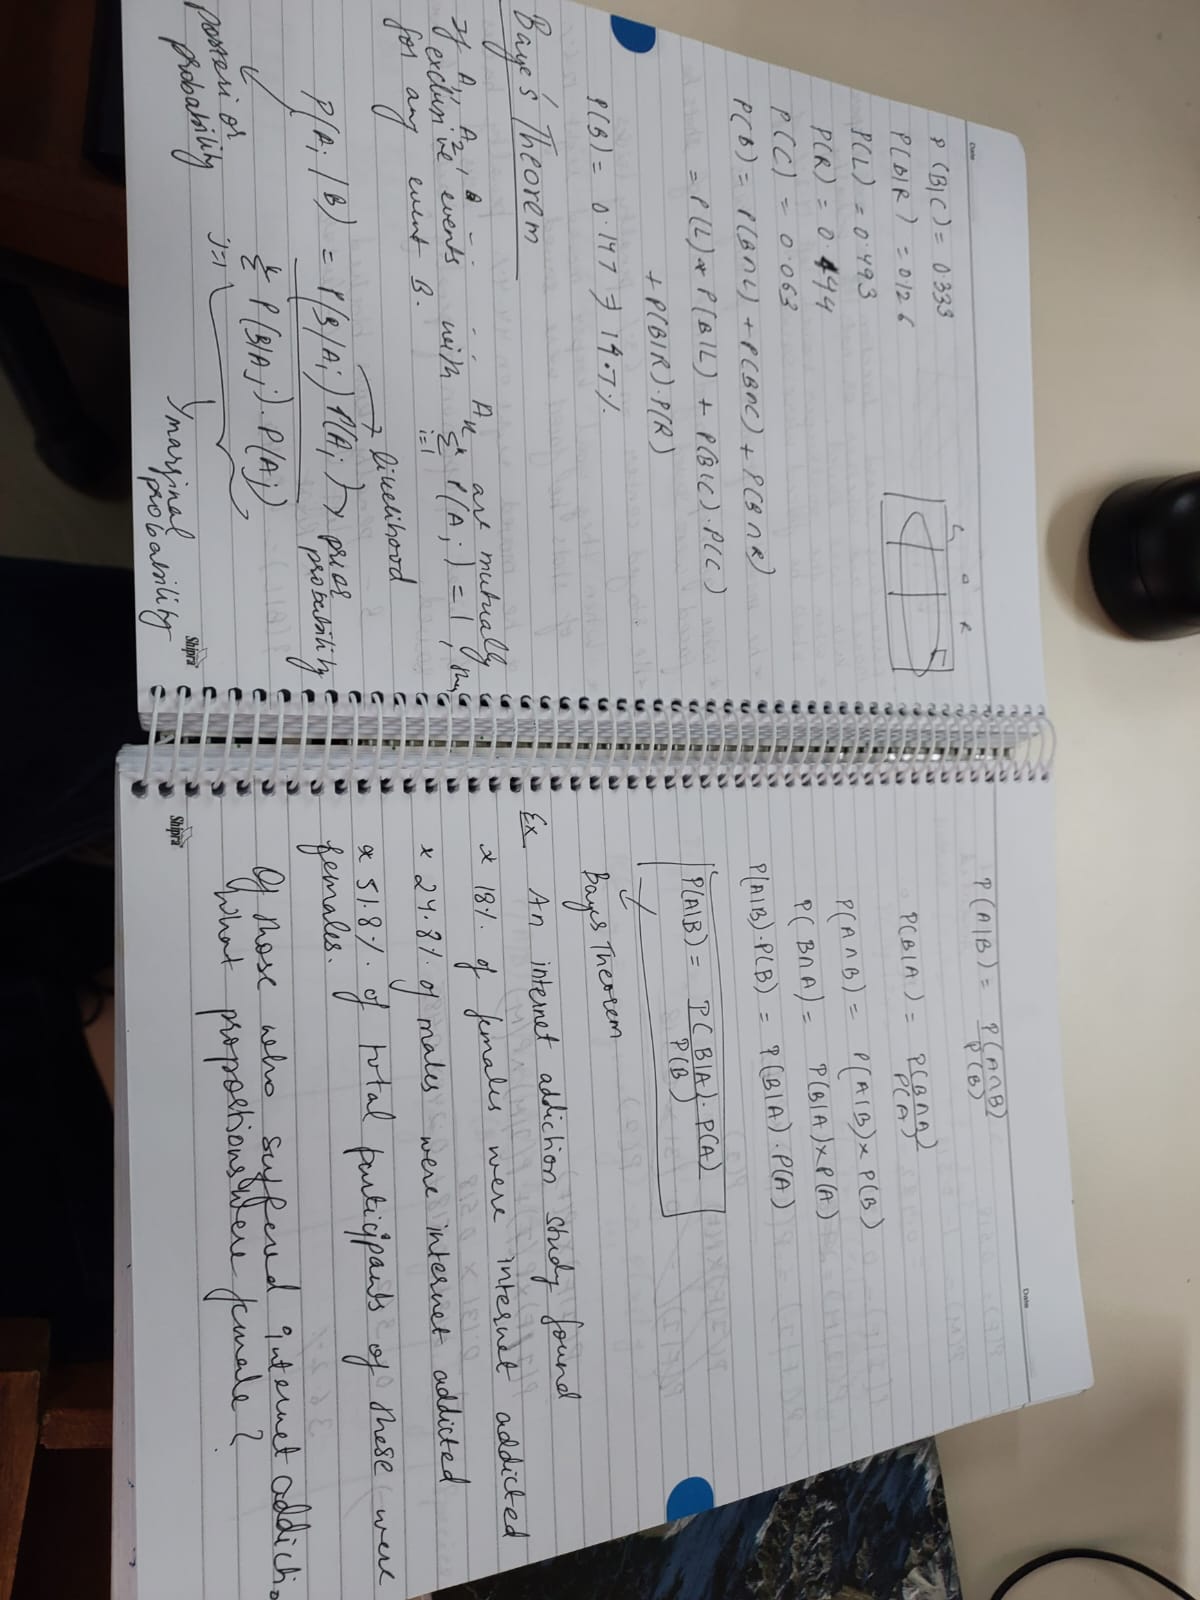 Date
P(B|C) = 0.333
P(B|R) = 0126
P(L) = 0.493
P(R) = 0.444
P(C) = 0.063
P(B) = P(B∩L) + P(B∩C) + P(B∩R)
= P(L) * P(B|L) + P(B|C).P(C)
+ P(B|R).P(R)
P(B) = 0.147 ⇒ 14.7%.
C R
Baye's Theorem
If A1, A2, - - . . . Ak are mutually
exclusive events with Σ i=1 k P(Ai) = 1, then
for any event B.
likelihood
P(Ai/B) = P(B/Ai) P(Ai) prior
probability
Σ j=1 k P(B/Aj).P(Aj)
posterior
probability
marginal
probability
Shipra
Date
P(A|B) = P(A∩B)
P(B)
P(B|A) = P(B∩A)
P(A)
P(A∩B) = P(A|B) x P(B)
P(B∩A) = P(B|A) x P(A)
P(A|B).P(B) = P(B|A).P(A)
P(A|B) = P(B|A).P(A)
P(B)
Bayes Theorem
Ex An internet addiction study found
* 18%. of females were internet addicted
* 24.8%. of males were internet addicted
* 51.8%. of total participants of these were
females.
Of those who suffered internet addictio
What proportions were female?
Shipra